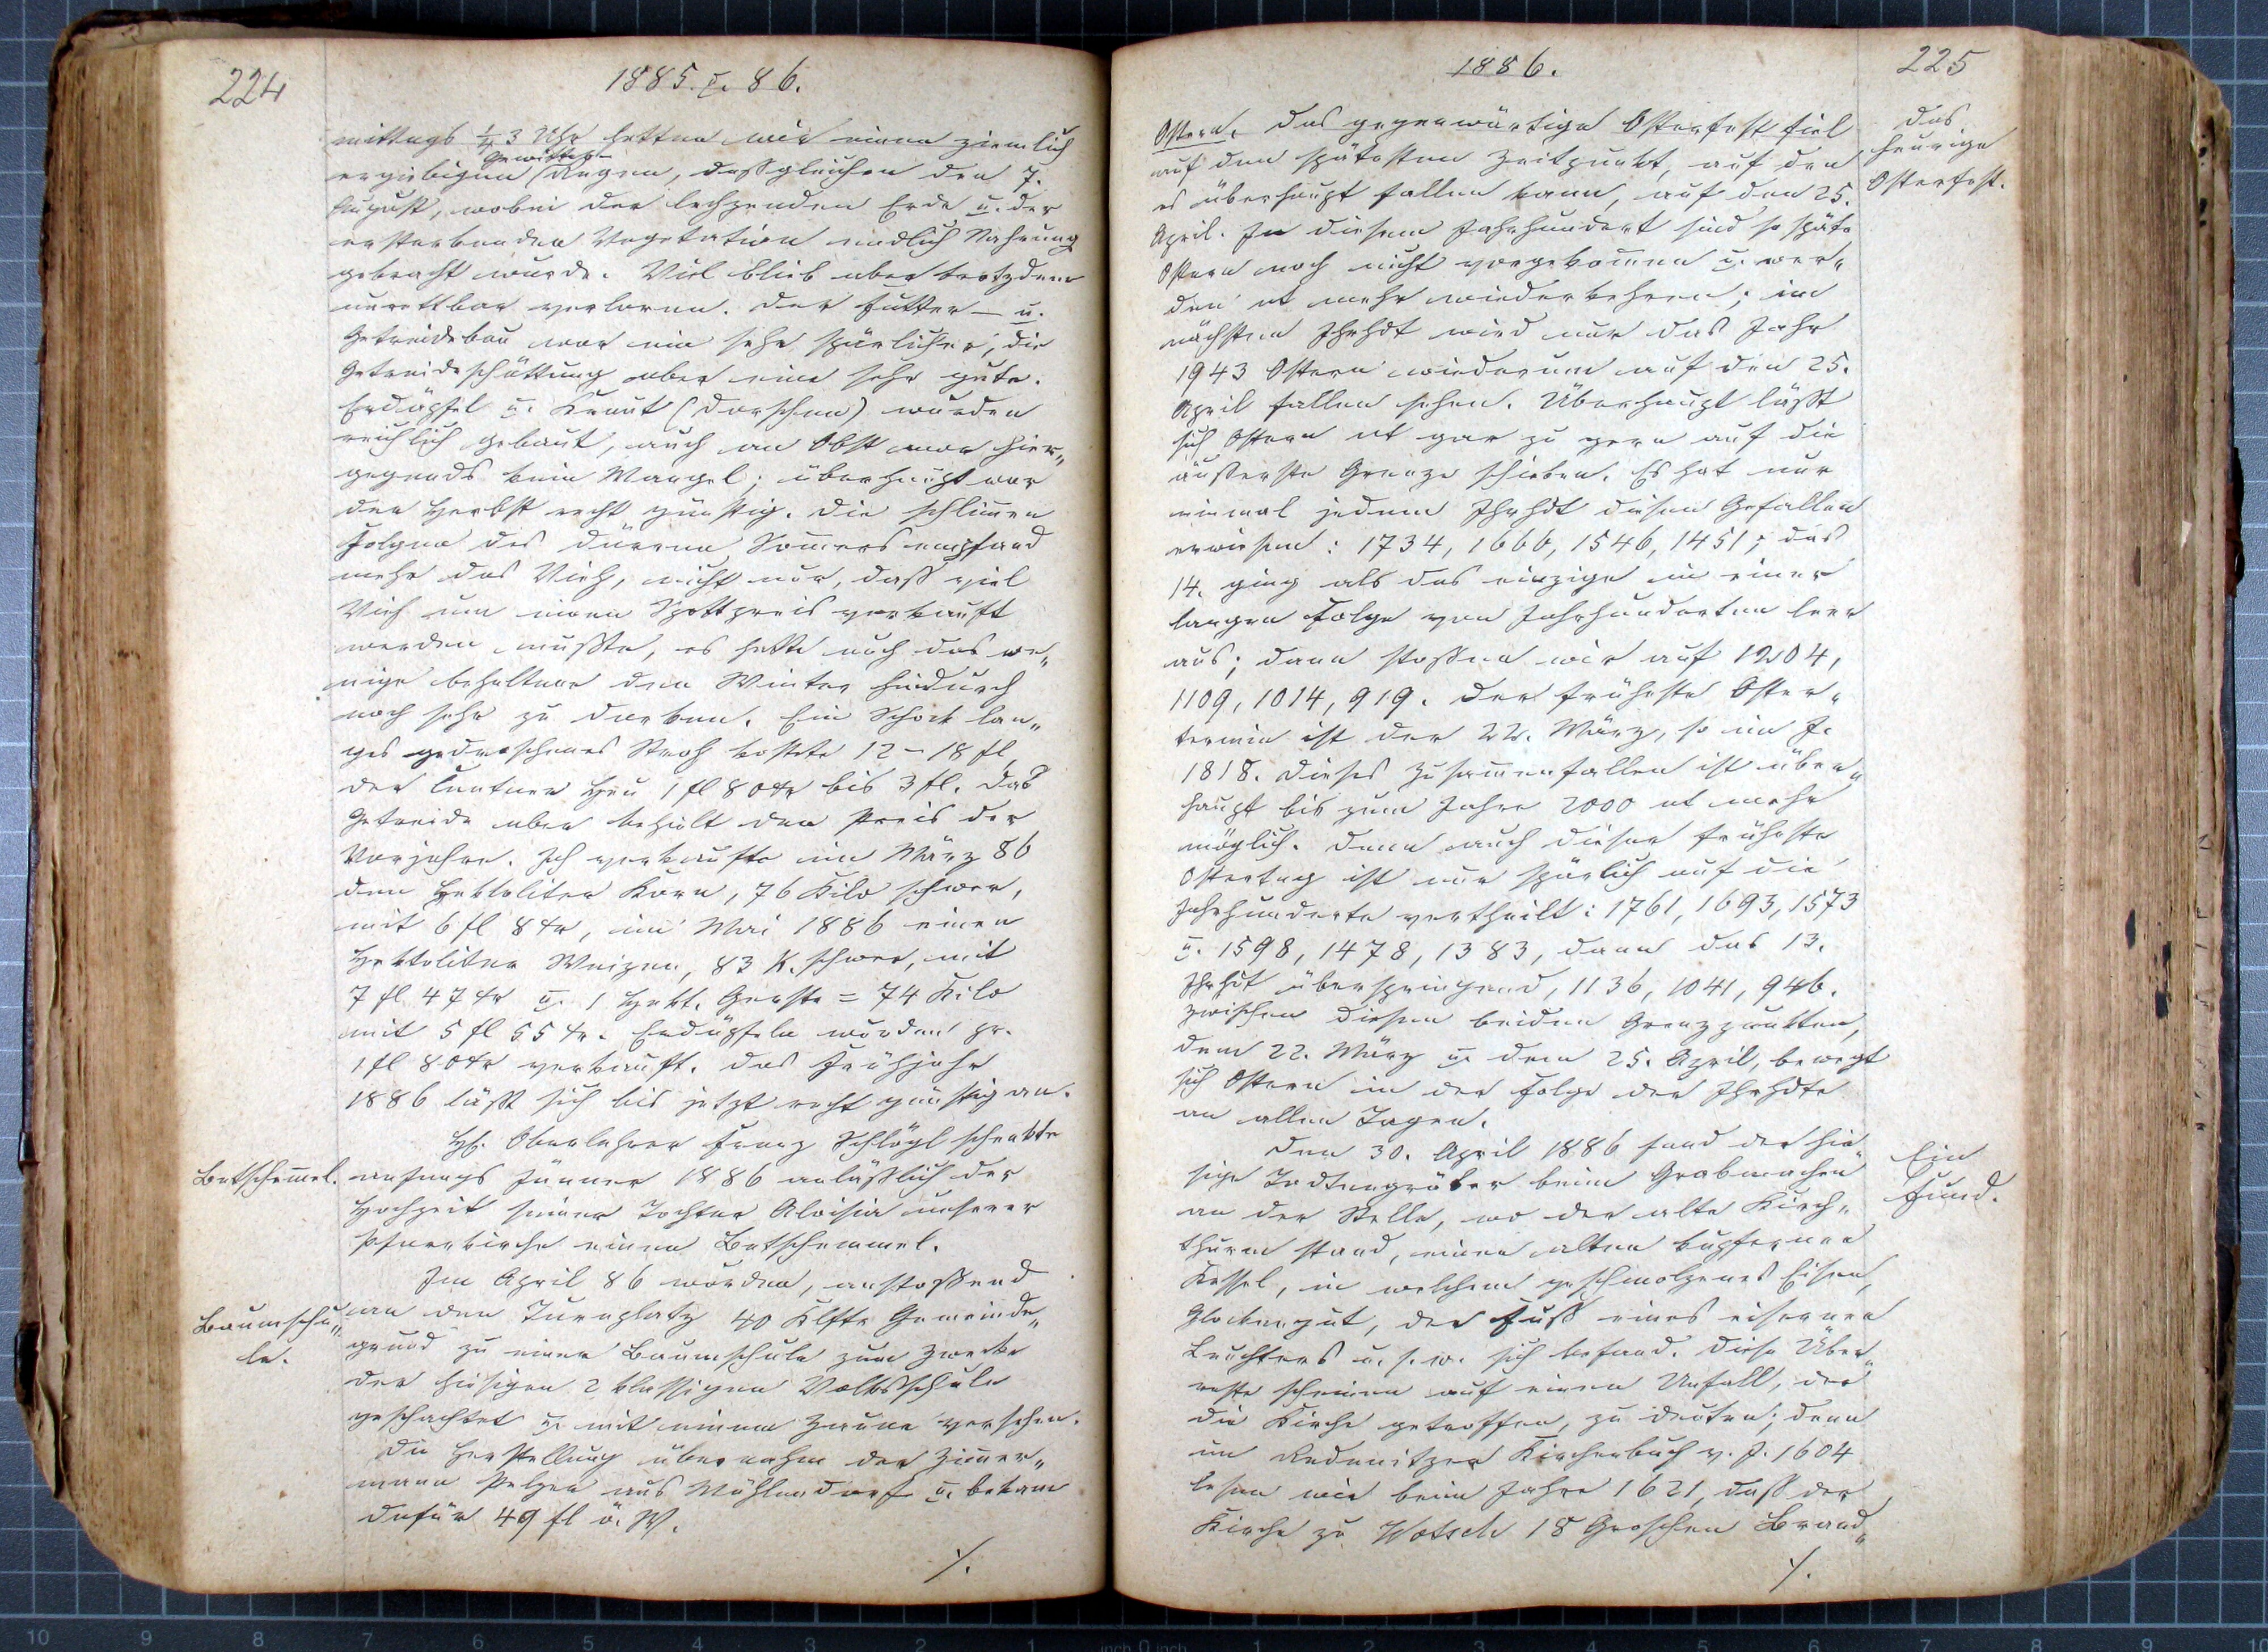 224
1885. u. 86.
mittags ¼ 3 Uhr hatten wir einen ziemlich
Gewitter-
ergiebigen Regen, deßgleichen den 7.
August, wobei der lechzenden Erde u. der
ersterbenden Vegetation endlich Nahrung
gebracht wurde. Viel blieb aber trotzdem
unrettbar verloren. Der Futter- u.
Getreidebau war ein sehr spärlicher, die
Getreideschüttung aber eine sehr gute.
Erdäpfel u. Kraut (Dorschen) wurden
reichlich gebaut, auch an Obst war hier„
gegends kein Mangel; überhaupt war
der Herbst recht günstig. Die schlim̄en
Folgen des dürren Som̄ers empfand
mehr das Vieh, nicht nur, daß viel
Vieh um einen Spottpreis verkauft
werden mußte, es hatte auch das we„
nige behaltene den Winter hindurch
noch sehr zu darben. Ein Schock lan„
ges gedroschenes Stroh kostete 12 - 18 fl,
der Centner Heu 1 fl 80 kr bis 3 fl. Das
Getreide aber behielt den Preis der
Vorjahre. Ich verkaufte im März 86
den Hektoliter Korn, 76 Kilo schwer,
mit 6 fl 8 kr, im Mai 1886 einen
Hektoliter Weizen, 83 K. schwer, mit
7 fl 47 kr u. 1 Hekt. Gerste = 74 Kilo
mit 5 fl 55 kr. Erdäpfeln wurden pr.
1 fl 80 kr verkauft. Das Frühjahr
1886 läßt sich bis jetzt recht günstig an.
H. Oberlehrer Franz Schlögl schenkte
Betschem̄el. anfangs Jänner 1886 anläßlich der
Hochzeit seiner Tochter Aloisia unserer
Pfarrkirche einen Betschemmel.
Im April 86 wurden, anstoßend
Baumschu„ an den Turnplatz 40 Klftr Gemeinde„
le. grund zu einer Baumschule zum Zwecke
der hiesigen 2 klassigen Volksschule
geschachtet u. mit einem Zaune versehen.
Die Herstellung übernahm der Zim̄er„
mann Pelzer aus Mühlendorf u. bekam
dafür 49 fl ö. W.
./.
1886.
225
Ostern. Das gegenwärtige Osterfest fiel
auf den spätesten Zeitpunkt, auf den
es überhaupt fallen kann, auf den 25.
April. In diesem Jahrhundert sind so späte
Ostern noch nicht vorgekom̄en u. wer„
den nt mehr wiederkehren; im
nächsten Jhrhdt wird nur das Jahr
1943 Ostern wiederum auf den 25.
April fallen sehen. Überhaupt läßt
sich Ostern nt gar zu gern auf die
äußerste Grenze schieben. Es hat nur
einmal jedem Jhrhdt diesen Gefallen
erwiesen: 1734, 1666, 1546, 1451; das
14. ging als das einzige in einer
langen Folge von Jahrhunderten leer
aus; dann stoßen wir auf 1204,
1109, 1014, 919. Der früheste Oster„
termin ist der 22. März, so im J.
1818. Dieses Zusam̄enfallen ist über„
haupt bis zum Jahre 2000 nt mehr
möglich. Denn auch dieser früheste
Ostertag ist nur spärlich auf die
Jahrhunderte vertheilt: 1761, 1693, 1573
u. 1598, 1478, 1383, dann das 13.
Jhrhdt überspringend, 1136, 1041, 946.
Zwischen diesen beiden Grenzpunkten,
dem 22. März u. dem 25. April, bewegt
sich Ostern in der Folge der Jhrhdte
an allen Tagen.
Den 30. April 1886 fand der hie„
sige Todtengräber beim Grabmachen
an der Stelle, wo der alte Kirch„
thurm stand, einen alten kupfernen
Kessel, in welchem geschmolzenes Eisen,
Glockengut, der Fuß eines eisernen
Leuchters u. s. w. sich befand. Diese Über„
reste scheinen auf einen Unfall, der
die Kirche getroffen, zu deuten; denn
im Redenitzer Kirchenbuch v. J. 1604
lesen wir beim Jahre 1621, daß der
Kirche zu Wotsch 18 Groschen Brand„
./.
das
heurige
Osterfest.
Ein
Fund.